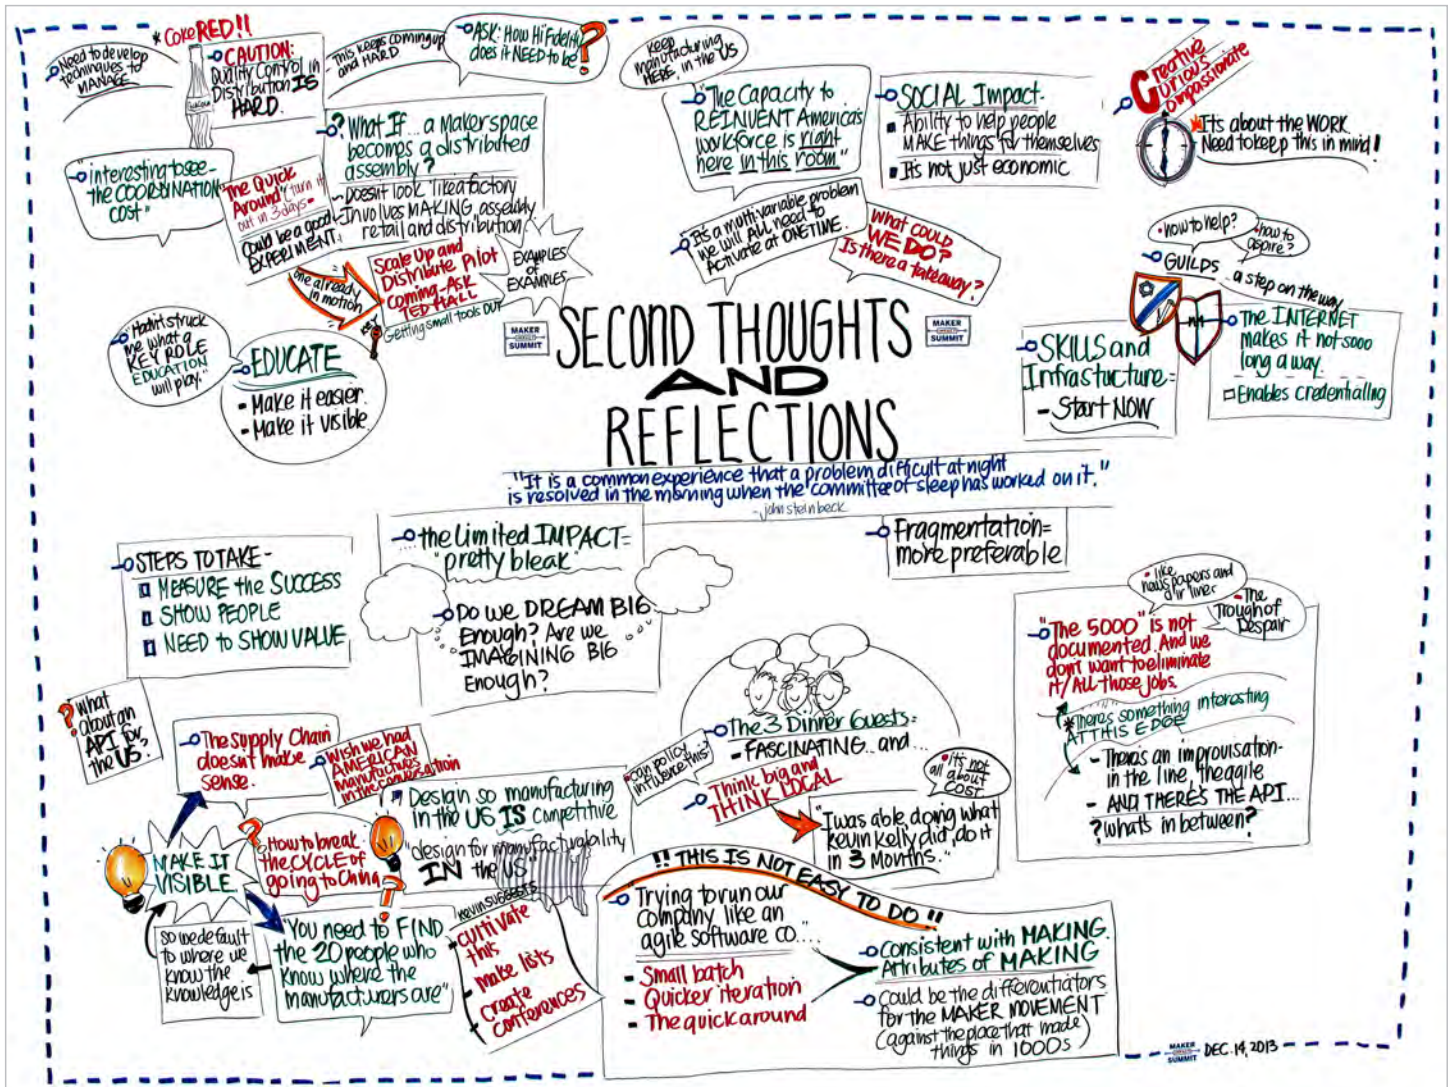 * Coke RED!!
Need to develop
techniques to
MANAGE
CAUTION:
Quality Control in
Distribution IS
HARD.
This keeps coming up
and HARD
ASK: How Hi Fidelity
does it NEED to be?
keep
manufacturing
HERE, in the US
"The Capacity to
REINVENT America's
workforce is right
here in this room"
SOCIAL Impact.
Ability to help people
MAKE things for themselves
It's not just economic
Creative
Curious
Compassionate
It's about the WORK
Need to keep this in mind!
"interesting to see-
the COORDINATION
COST"
"The Quick
Around" (turn it
out in 3 days-
Could be a good
EXPERIMENT.
? What If... a Maker space
becomes a distributed
assembly?
- Doesn't look like a factory
- Involves MAKING, assembly,
retail and distribution
one already
in motion
Scale Up and
Distribute Pilot
coming-Ask
TED HALL
Getting small tools OUT
EXAMPLES
of
EXAMPLES
It's a multi variable problem
We will ALL need to
Activate at ONE TIME.
What COULD
WE DO?
Is there a takeaway?
• how to help?
• how to
aspire?
GUILDS
a step on the way
SKILLS and
Infrastucture=
- Start NOW
The INTERNET
makes it not sooo
long a way.
Enables credentialing
"Hadn't struck
me what a
KEY ROLE
EDUCATION
will play."
EDUCATE
- Make it easier.
- Make it visible.
MAKER
SUMMIT
SECOND THOUGHTS
AND
REFLECTIONS
MAKER
SUMMIT
"It is a common experience that a problem difficult at night
is resolved in the morning when the committee of sleep has worked on it."
- john steinbeck
STEPS TO TAKE -
MEASURE the SUCCESS
SHOW PEOPLE
NEED to SHOW VALUE
... the Limited IMPACT=
"pretty bleak"
Do we DREAM BIG
Enough? Are we
IMAGINING BIG
Enough?
Fragmentation=
more preferable
• like
newspapers and
air liner
• The
Trough of
Despair
"The 5000" is not
documented. And we
don't want to eliminate
it / All those jobs.
* There's something interesting
AT THIS EDGE
- There's an improvisation-
in the line, the agile
- AND THERE'S THE API...
? what's in between?
? What
about an
API for
the US?
The Supply Chain
doesn't make
sense.
Wish we had
AMERICAN
manufactures
in the conversation
Design so manufacturing
in the US IS competitive
"design for manufacturability
IN the US"
The 3 Dinner Guests=
- FASCINATING.. and...
• can policy
influence this?
Think big and
THINK LOCAL
• it's not
all about
COST
"I was able, doing what
kevin kelly did, do it
in 3 Months."
MAKE IT
VISIBLE
? How to break
the CYCLE of
going to China
?
so we default
to where we
know the
knowledge is
"You need to FIND
the 20 people who
know where the
manufacturers are"
kevin SUGGESTS
- cultivate
this
- make lists
- create
conferences
!! THIS IS NOT EASY TO DO !!
Trying to run our
company like an
agile software co....
- Small batch
- Quicker iteration
- The quick around
Consistent with MAKING.
Attributes of MAKING
Could be the differentiators
for the MAKER MOVEMENT
(against the place that made
things in 1000s)
MAKER
SUMMIT
DEC. 14, 2013